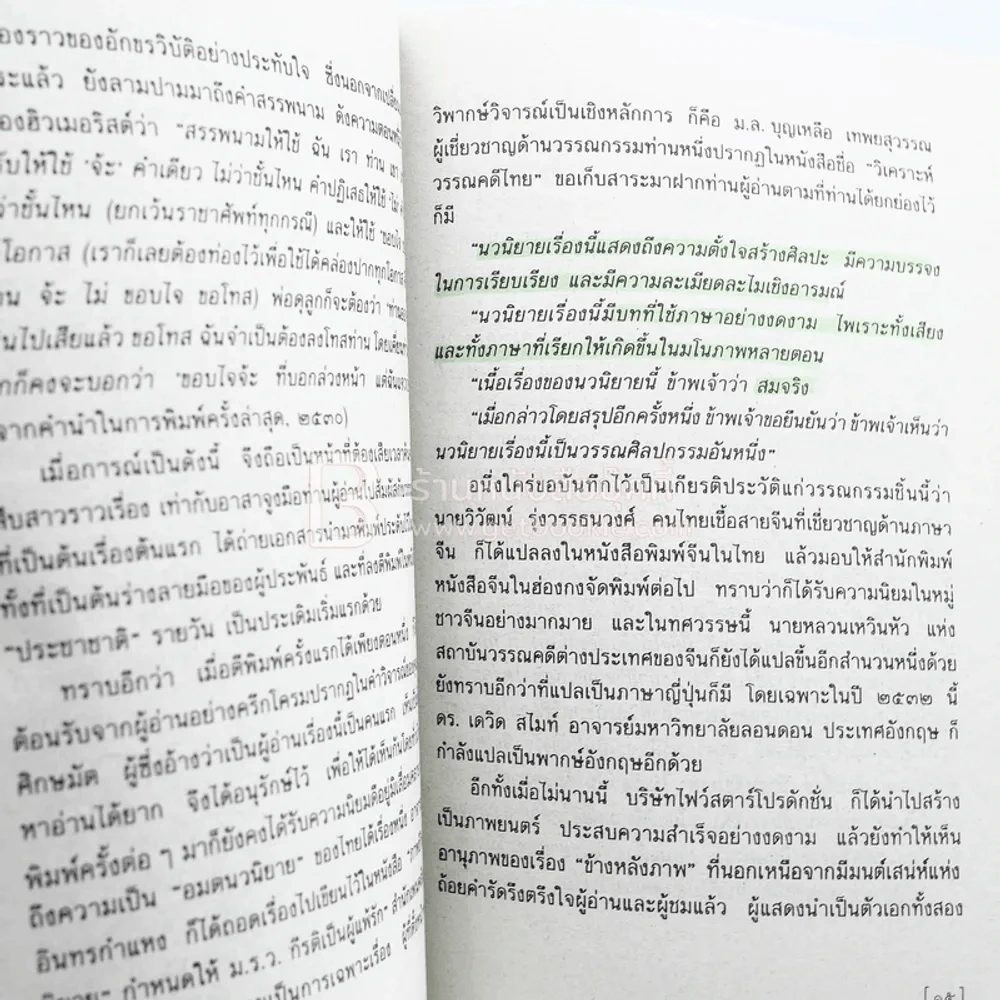 องราวของอักขรวิบัติอย่างประทับใจ ซึ่งนอกจากเปลี่ยน
ระแล้ว ยังลามปามมาถึงคำสรรพนาม ดังความตอนหนึ่ง
องฮิวเมอริสต์ว่า "สรรพนามให้ใช้ ฉัน เรา ท่าน เขา
รับให้ใช้ 'จ้ะ' คำเดียว ไม่ว่าชั้นไหน คำปฏิเสธให้ใช้ 'ไม่'
ว่าชั้นไหน (ยกเว้นราชาศัพท์ทุกกรณี) และให้ใช้ 'ขอบใจ
โอกาส (เราก็เลยต้องท่องไว้เพื่อใช้ได้คล่องปากทุกโอกาส
จ้ะ ไม่ ขอบใจ ขอโทส) พ่อดุลูกก็จะต้องว่า
นไปเสียแล้ว ขอโทส ฉันจำเป็นต้องลงโทสท่าน
กก็คงจะบอกว่า 'ขอบใจจ้ะ ที่บอกล่วงหน้า
จากคำนำในการพิมพ์ครั้งล่าสุด, ๒๕๓๐)
เมื่อการณ์เป็นดังนี้ จึงถือเป็นหน้าที่ต้องเสียเวลา
สืบสาวราวเรื่อง เท่ากับอาสาจูงมือท่านผู้อ่านไปสัมผัส
ที่เป็นต้นเรื่องต้นแรก ได้ถ่ายเอกสารนำมาพิมพ์ประดับ
ทั้งที่เป็นต้นร่างลายมือของผู้ประพันธ์ และที่ลงตีพิมพ์
"ประชาชาติ" รายวัน เป็นประเดิมเริ่มแรกด้วย
ทราบอีกว่า เมื่อตีพิมพ์ครั้งแรกได้เพียงตอนหนึ่ง
ต้อนรับจากผู้อ่านอย่างครึกโครมปรากฏในคำวิจารณ์ของ
ศิกษมัต ผู้ซึ่งอ้างว่าเป็นผู้อ่านเรื่องนี้เป็นคนแรก
หาอ่านได้ยาก จึงได้อนุรักษ์ไว้ เพื่อให้ได้เห็นกัน
พิมพ์ครั้งต่อ ๆ มาก็ยังคงได้รับความนิยมดีอยู่มิเสื่อมคลาย
ถึงความเป็น "อมตนวนิยาย" ของไทยได้เรื่องหนึ่ง
อินทรกำแหง ก็ได้ถอดเรื่องไปเขียนไว้ในหนังสือ
กำหนดให้ ม.ร.ว. กีรติเป็นผู้แพ้รัก
เป็นการเฉพาะเรื่อง
วิพากษ์วิจารณ์เป็นเชิงหลักการ ก็คือ ม.ล. บุญเหลือ เทพยสุวรรณ
ผู้เชี่ยวชาญด้านวรรณกรรมท่านหนึ่งปรากฏในหนังสือชื่อ "วิเคราะห์
วรรณคดีไทย" ขอเก็บสาระมาฝากท่านผู้อ่านตามที่ท่านได้ยกย่องไว้
ก็มี
"นวนิยายเรื่องนี้แสดงถึงความตั้งใจสร้างศิลปะ มีความบรรจง
ในการเรียบเรียง และมีความละเมียดละไมเชิงอารมณ์
"นวนิยายเรื่องนี้มีบทที่ใช้ภาษาอย่างงดงาม ไพเราะทั้งเสียง
และทั้งภาษาที่เรียกให้เกิดขึ้นในมโนภาพหลายตอน
"เนื้อเรื่องของนวนิยายนี้ ข้าพเจ้าว่า สมจริง
"เมื่อกล่าวโดยสรุปอีกครั้งหนึ่ง ข้าพเจ้าขอยืนยันว่า ข้าพเจ้าเห็นว่า
นวนิยายเรื่องนี้เป็นวรรณศิลปกรรมอันหนึ่ง"
อนึ่งใคร่ขอบันทึกไว้เป็นเกียรติประวัติแก่วรรณกรรมชิ้นนี้ว่า
นายวิวัฒน์ รุ่งวรรธนวงศ์ คนไทยเชื้อสายจีนที่เชี่ยวชาญด้านภาษา
จีน ก็ได้แปลลงในหนังสือพิมพ์จีนในไทย แล้วมอบให้สำนักพิมพ์
หนังสือจีนในฮ่องกงจัดพิมพ์ต่อไป ทราบว่าก็ได้รับความนิยมในหมู่
ชาวจีนอย่างมากมาย และในทศวรรษนี้ นายหลวนเหวินหัว แห่ง
สถาบันวรรณคดีต่างประเทศของจีนก็ยังได้แปลขึ้นอีกสำนวนหนึ่งด้วย
ยังทราบอีกว่าที่แปลเป็นภาษาญี่ปุ่นก็มี โดยเฉพาะในปี ๒๕๓๒ นี้
ดร. เดวิด สไมท์ อาจารย์มหาวิทยาลัยลอนดอน ประเทศอังกฤษ ก็
กำลังแปลเป็นพากษ์อังกฤษอีกด้วย
อีกทั้งเมื่อไม่นานนี้ บริษัทไฟว์สตาร์โปรดักชั่น ก็ได้นำไปสร้าง
เป็นภาพยนตร์ ประสบความสำเร็จอย่างงดงาม แล้วยังทำให้เห็น
อานุภาพของเรื่อง "ข้างหลังภาพ" ที่นอกเหนือจากมีมนต์เสน่ห์แห่ง
ถ้อยคำรัดรึงตรึงใจผู้อ่านและผู้ชมแล้ว ผู้แสดงนำเป็นตัวเอกทั้งสอง